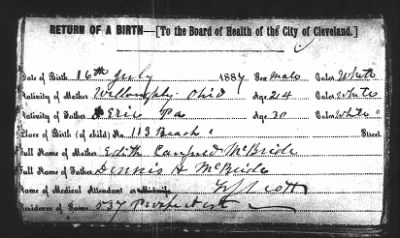 RETURN OF A BIRTH—[To the Board of Health of the City of Cleveland.]
Date of Birth 16th July 1887 Sex male Color White
Nativity of Mother Willoughby Ohio Age 24 Color White
Nativity of Father Erie Pa Age 30 Color White
Place of Birth (of child) No. 113 Beach Street
Full Name of Mother Edith Canfield McBride
Full Name of Father Dennis H McBride
Name of Medical Attendant or Midwife Scott
Residence of Same 537 Prospect st